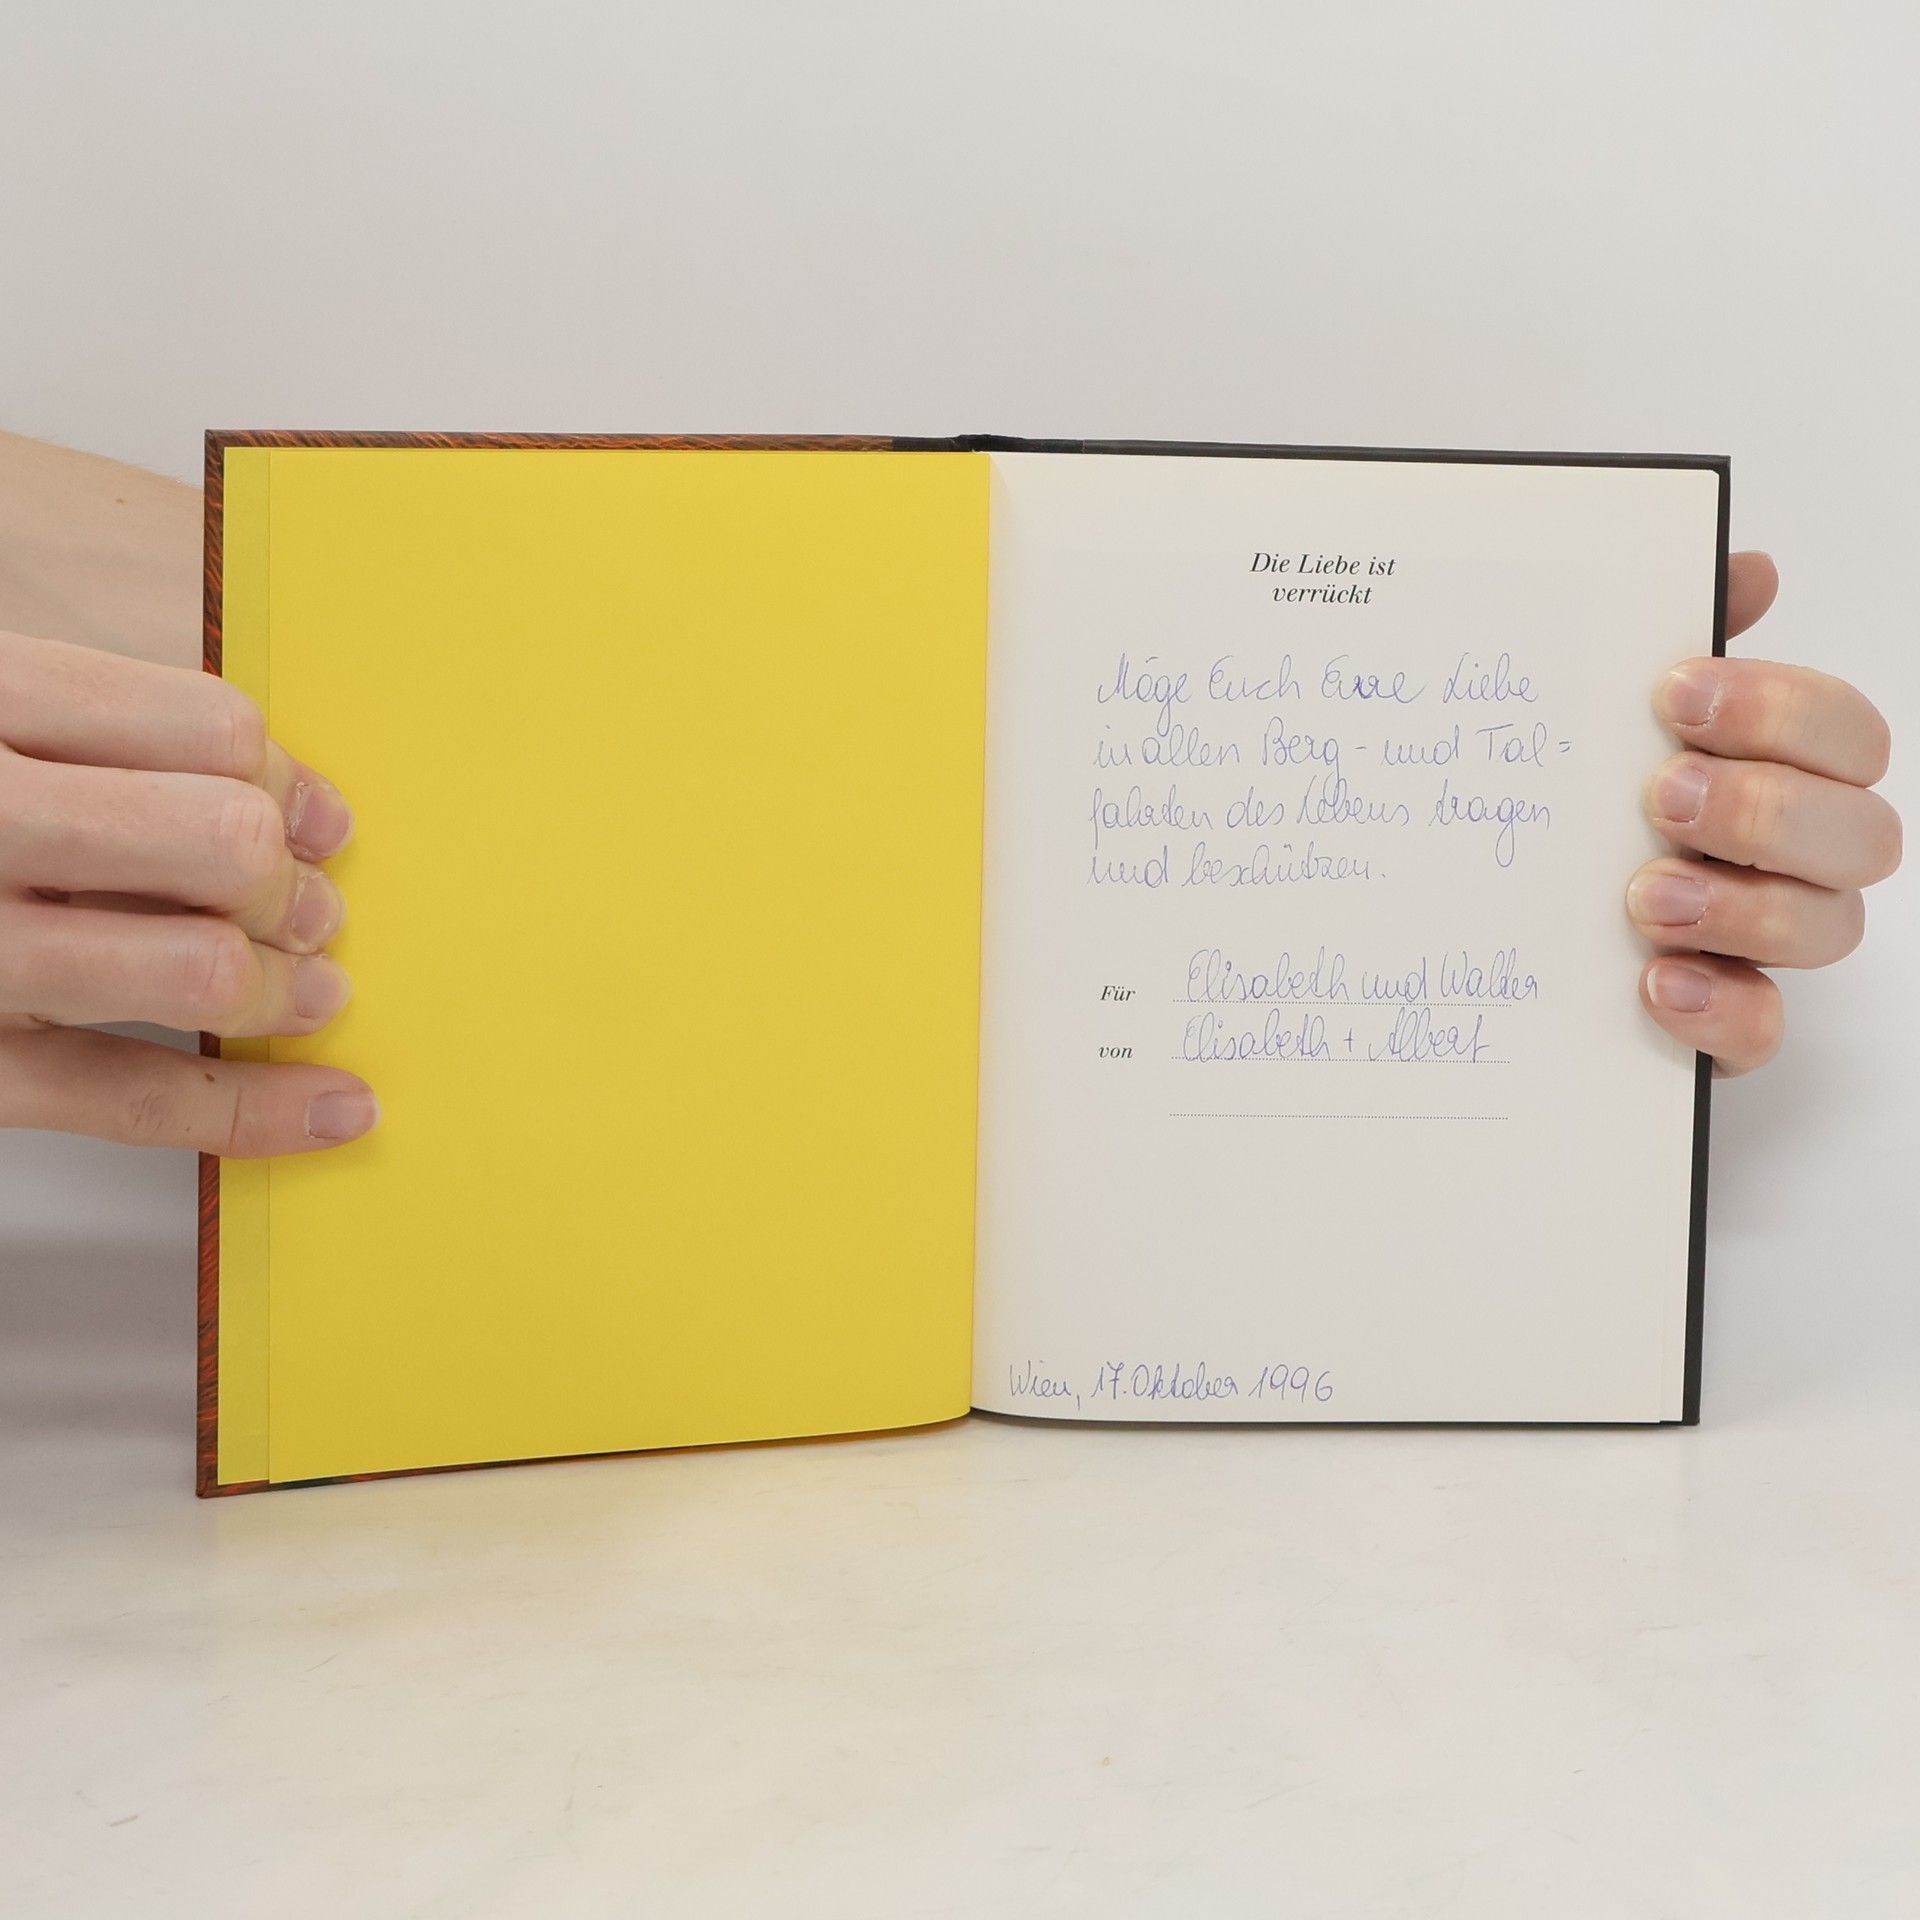 Die Liebe ist
verrückt
Möge Euch Eure Liebe
in allen Berg- und Tal=
fahrten des Lebens tragen
und beschützen.
Für Elisabeth und Walter
von Elisabeth + Albert
Wien, 17. Oktober 1996